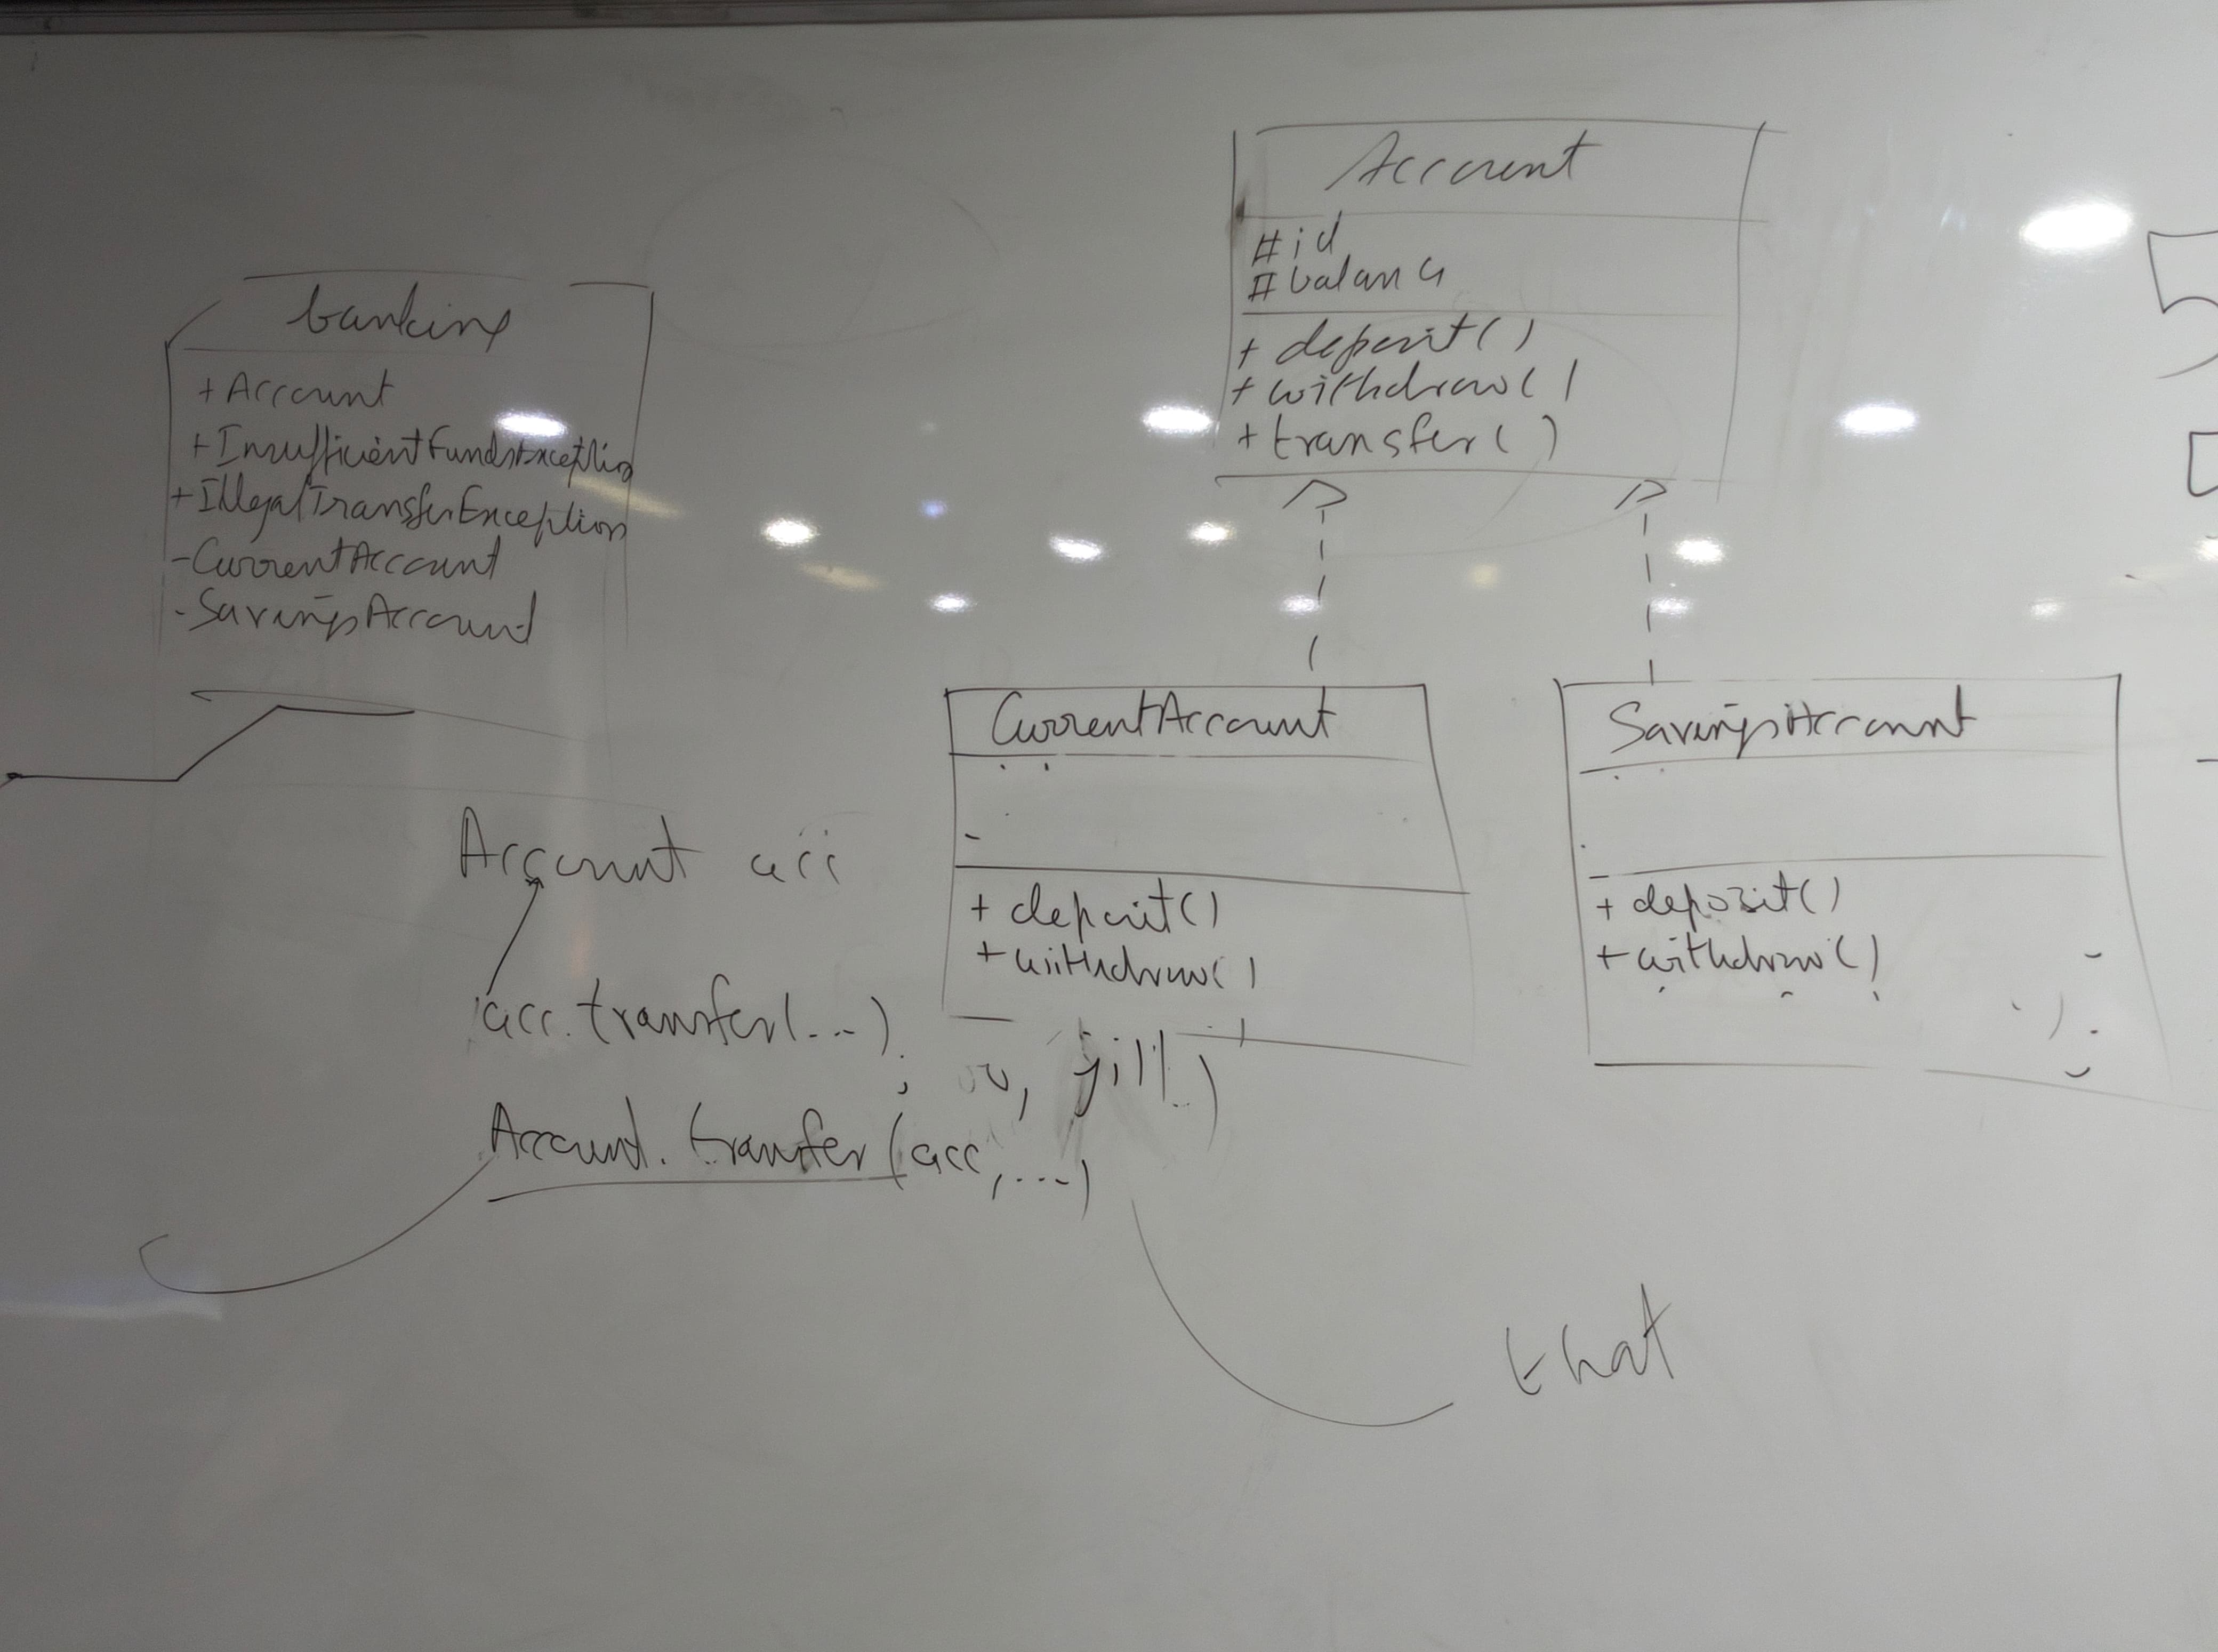 banking
+Account
+InsufficientFundsException
+IllegalTransferException
-CurrentAccount
-SavingsAccount
Account
#id
#balance
+ deposit()
+ withdraw()
+ transfer()
CurrentAccount
+ deposit()
+ withdraw()
SavingsAccount
+ deposit()
+ withdraw()
Account acc
acc.transfer(...);
, jill)
Account.transfer(acc,...)
that
5